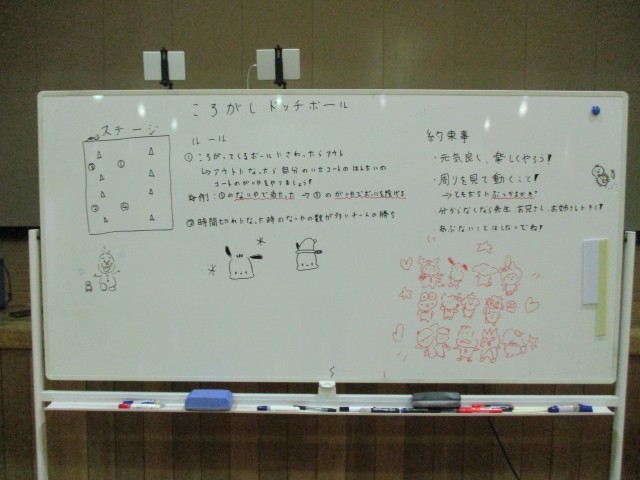 ころがしドッヂボール
ステージ
ルール
① ころがってくるボールにさわったらアウト
↳アウトになったら自分のいたコートのはんたいの
コートのがいやをやりましょう!
☆例:①のないやで当たった → ③のがいやでボールを投げる
② 時間切れになった時のないやの数が多いチームの勝ち
約束事
・元気良く、楽しくやろう!
・周りを見て動くこと!
→ともだちにぶつかるかも?
・分からなくなったら先生、お兄さん、お姉さんにきく!
・あぶないことはしないでね!